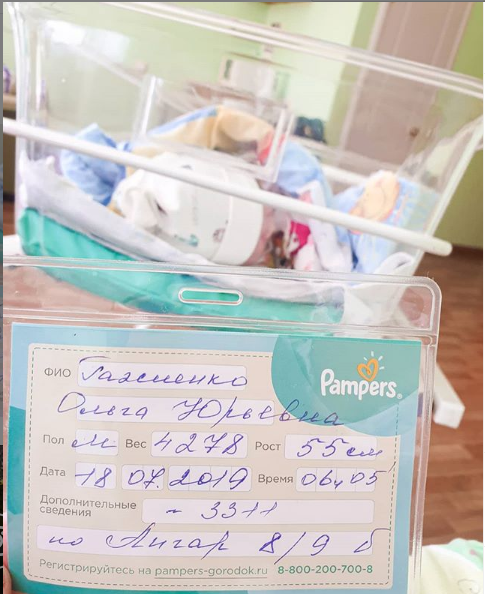 Pampers
ФИО Гажиенко
Ольга Юрьевна
Пол м Вес 4278 Рост 55 см
Дата 18 07. 2019 Время 06ч 05'
Дополнительные
сведения ~ 3311
по Ангар 8/9 б
Регистрируйтесь на pampers-gorodok.ru 8-800-200-700-8